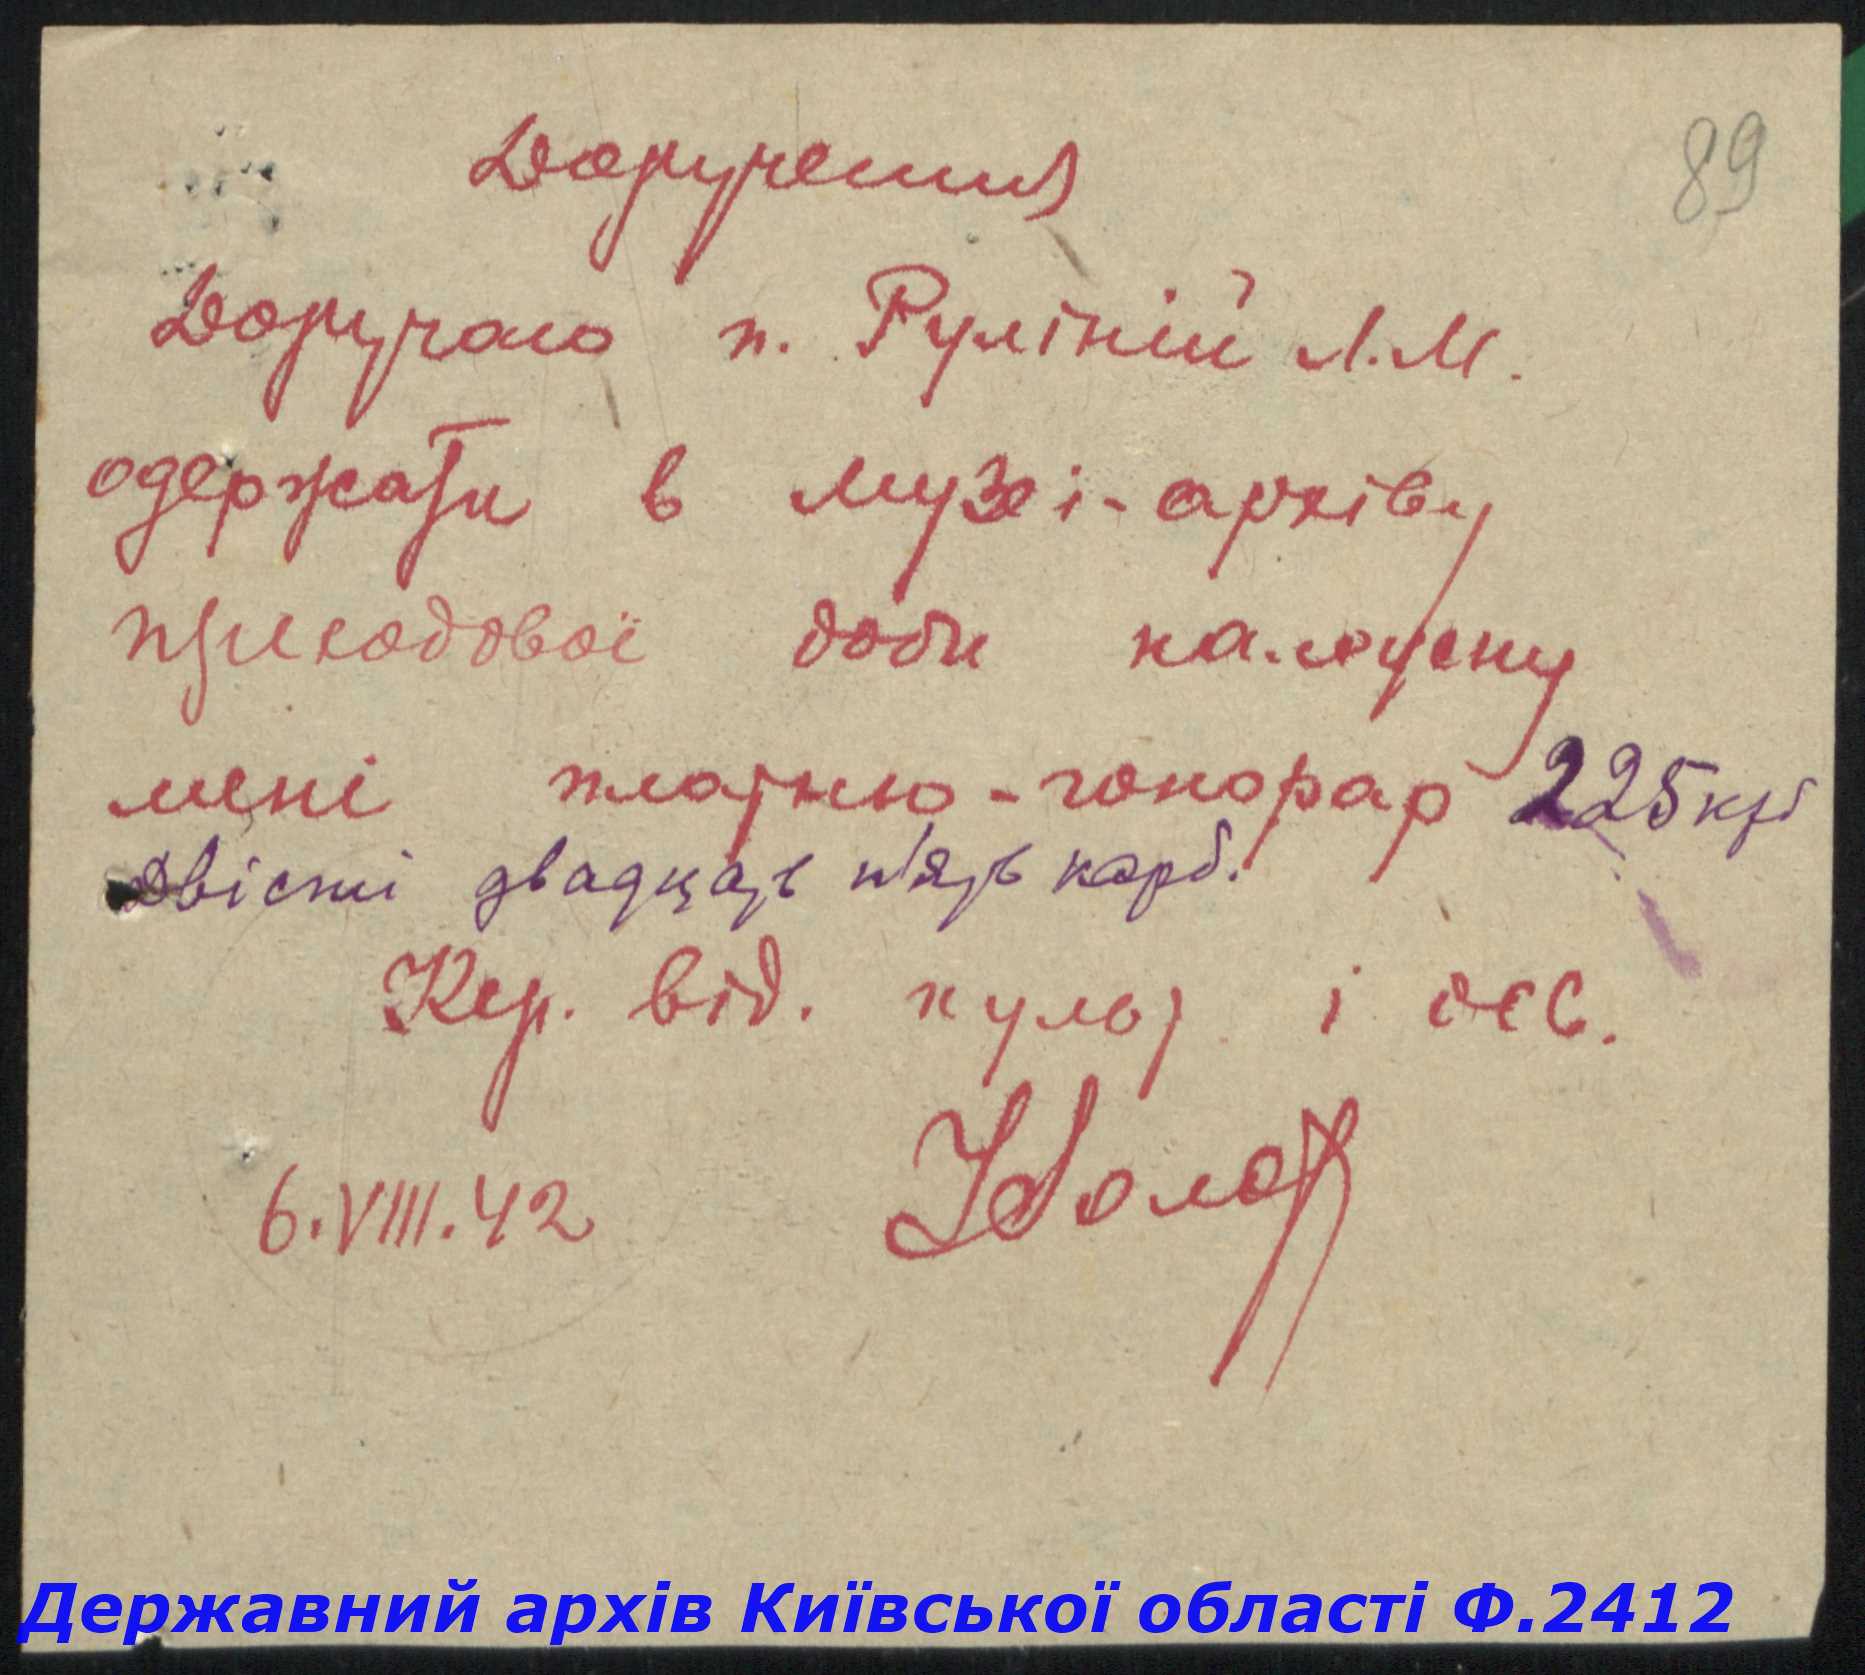 89
Доручення
Доручаю п. Руліній Л.М.
одержати в музеї-архіву
приходової доби належну
мені платню-гонорар 225 крб
двісті двадцять п'ять карб.
Кер. від. культ і осв.
6.VIII.42
Державний архів Київської області Ф.2412